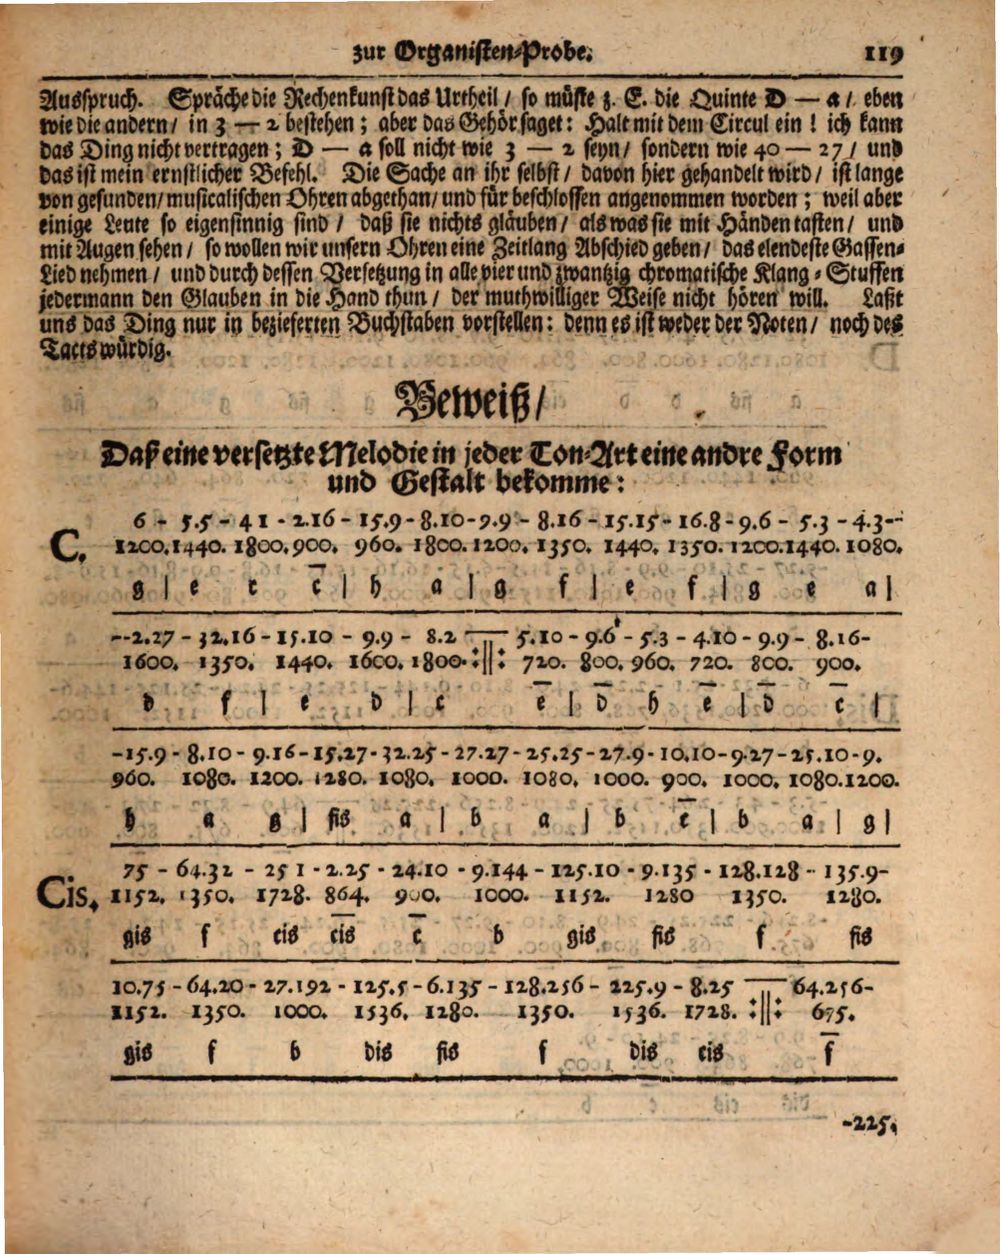 zur Organisten-Probe. 119
Ausspruch. Spräche die Rechenkunst das Urtheil / so müste z. E. die Quinte D — a / eben
wie die andern / in 3 — 2 bestehen ; aber das Gehör saget : Halt mit dem Circul ein ! ich kann
das Ding nicht vertragen ; D — a soll nicht wie 3 — 2 seyn / sondern wie 40 — 27 / und
das ist mein ernstlicher Befehl. Die Sache an ihr selbst / davon hier gehandelt wird / ist lange
von gesunden / musicalischen Ohren abgethan / und für beschlossen angenommen worden ; weil aber
einige Leute so eigensinnig sind / daß sie nichts gläuben / als was sie mit Händen tasten / und
mit Augen sehen / so wollen wir unsern Ohren eine Zeitlang Abschied geben / das elendeste Gassen-
Lied nehmen / und durch dessen Versetzung in alle vier und zwantzig chromatische Klang-Stuffen
jedermann den Glauben in die Hand thun / der muthwilliger Weise nicht hören will. Laßt
uns das Ding nur in bezieferten Buchstaben vorstellen : denn es ist weder der Noten / noch des
Tacts würdig.
Beweiß /
Daß eine versetzte Melodie in jeder Ton-Art eine andre Form
und Gestalt bekomme :
6 - 5.5 - 4 1 - 2.16 - 15.9 - 8.10 - 9.9 - 8.16 - 15.15 - 16.8 - 9.6 - 5.3 - 4.3--
C. 1200. 1440. 1800. 900. 960. 1800. 1200. 1350. 1440. 1350. 1200. 1440. 1080.
g | e c c̅ | h a | g f | e f | g e a |
--2.27 - 32.16 - 15.10 - 9.9 - 8.2 :||: 5.10 - 9.6 - 5.3 - 4.10 - 9.9 - 8.16-
1600. 1350. 1440. 1600. 1800. 720. 800. 960. 720. 800. 900.
d f | e d | c e̅ | d̅ h e̅ | d̅ c̅ |
-15.9 - 8.10 - 9.16 - 15.27 - 32.25 - 27.27 - 25.25 - 27.9 - 10.10 - 9.27 - 25.10 - 9.
960. 1080. 1200. 1280. 1080. 1000. 1080. 1000. 900. 1000. 1080. 1200.
h a g | fis a | b a | b c̅ | b a | g |
75 - 64.32 - 25 1 - 2.25 - 24.10 - 9.144 - 125.10 - 9.135 - 128.128 - 135.9-
Cis. 1152. 1350. 1728. 864. 900. 1000. 1152. 1280 1350. 1280.
gis f cis c̅i̅s̅ c̅ b gis fis f fis
10.75 - 64.20 - 27.192 - 125.5 - 6.135 - 128.256 - 225.9 - 8.25 :||: 64.256-
1152. 1350. 1000. 1536. 1280. 1350. 1536. 1728. 675.
gis f b dis fis f dis cis f̅
-225.